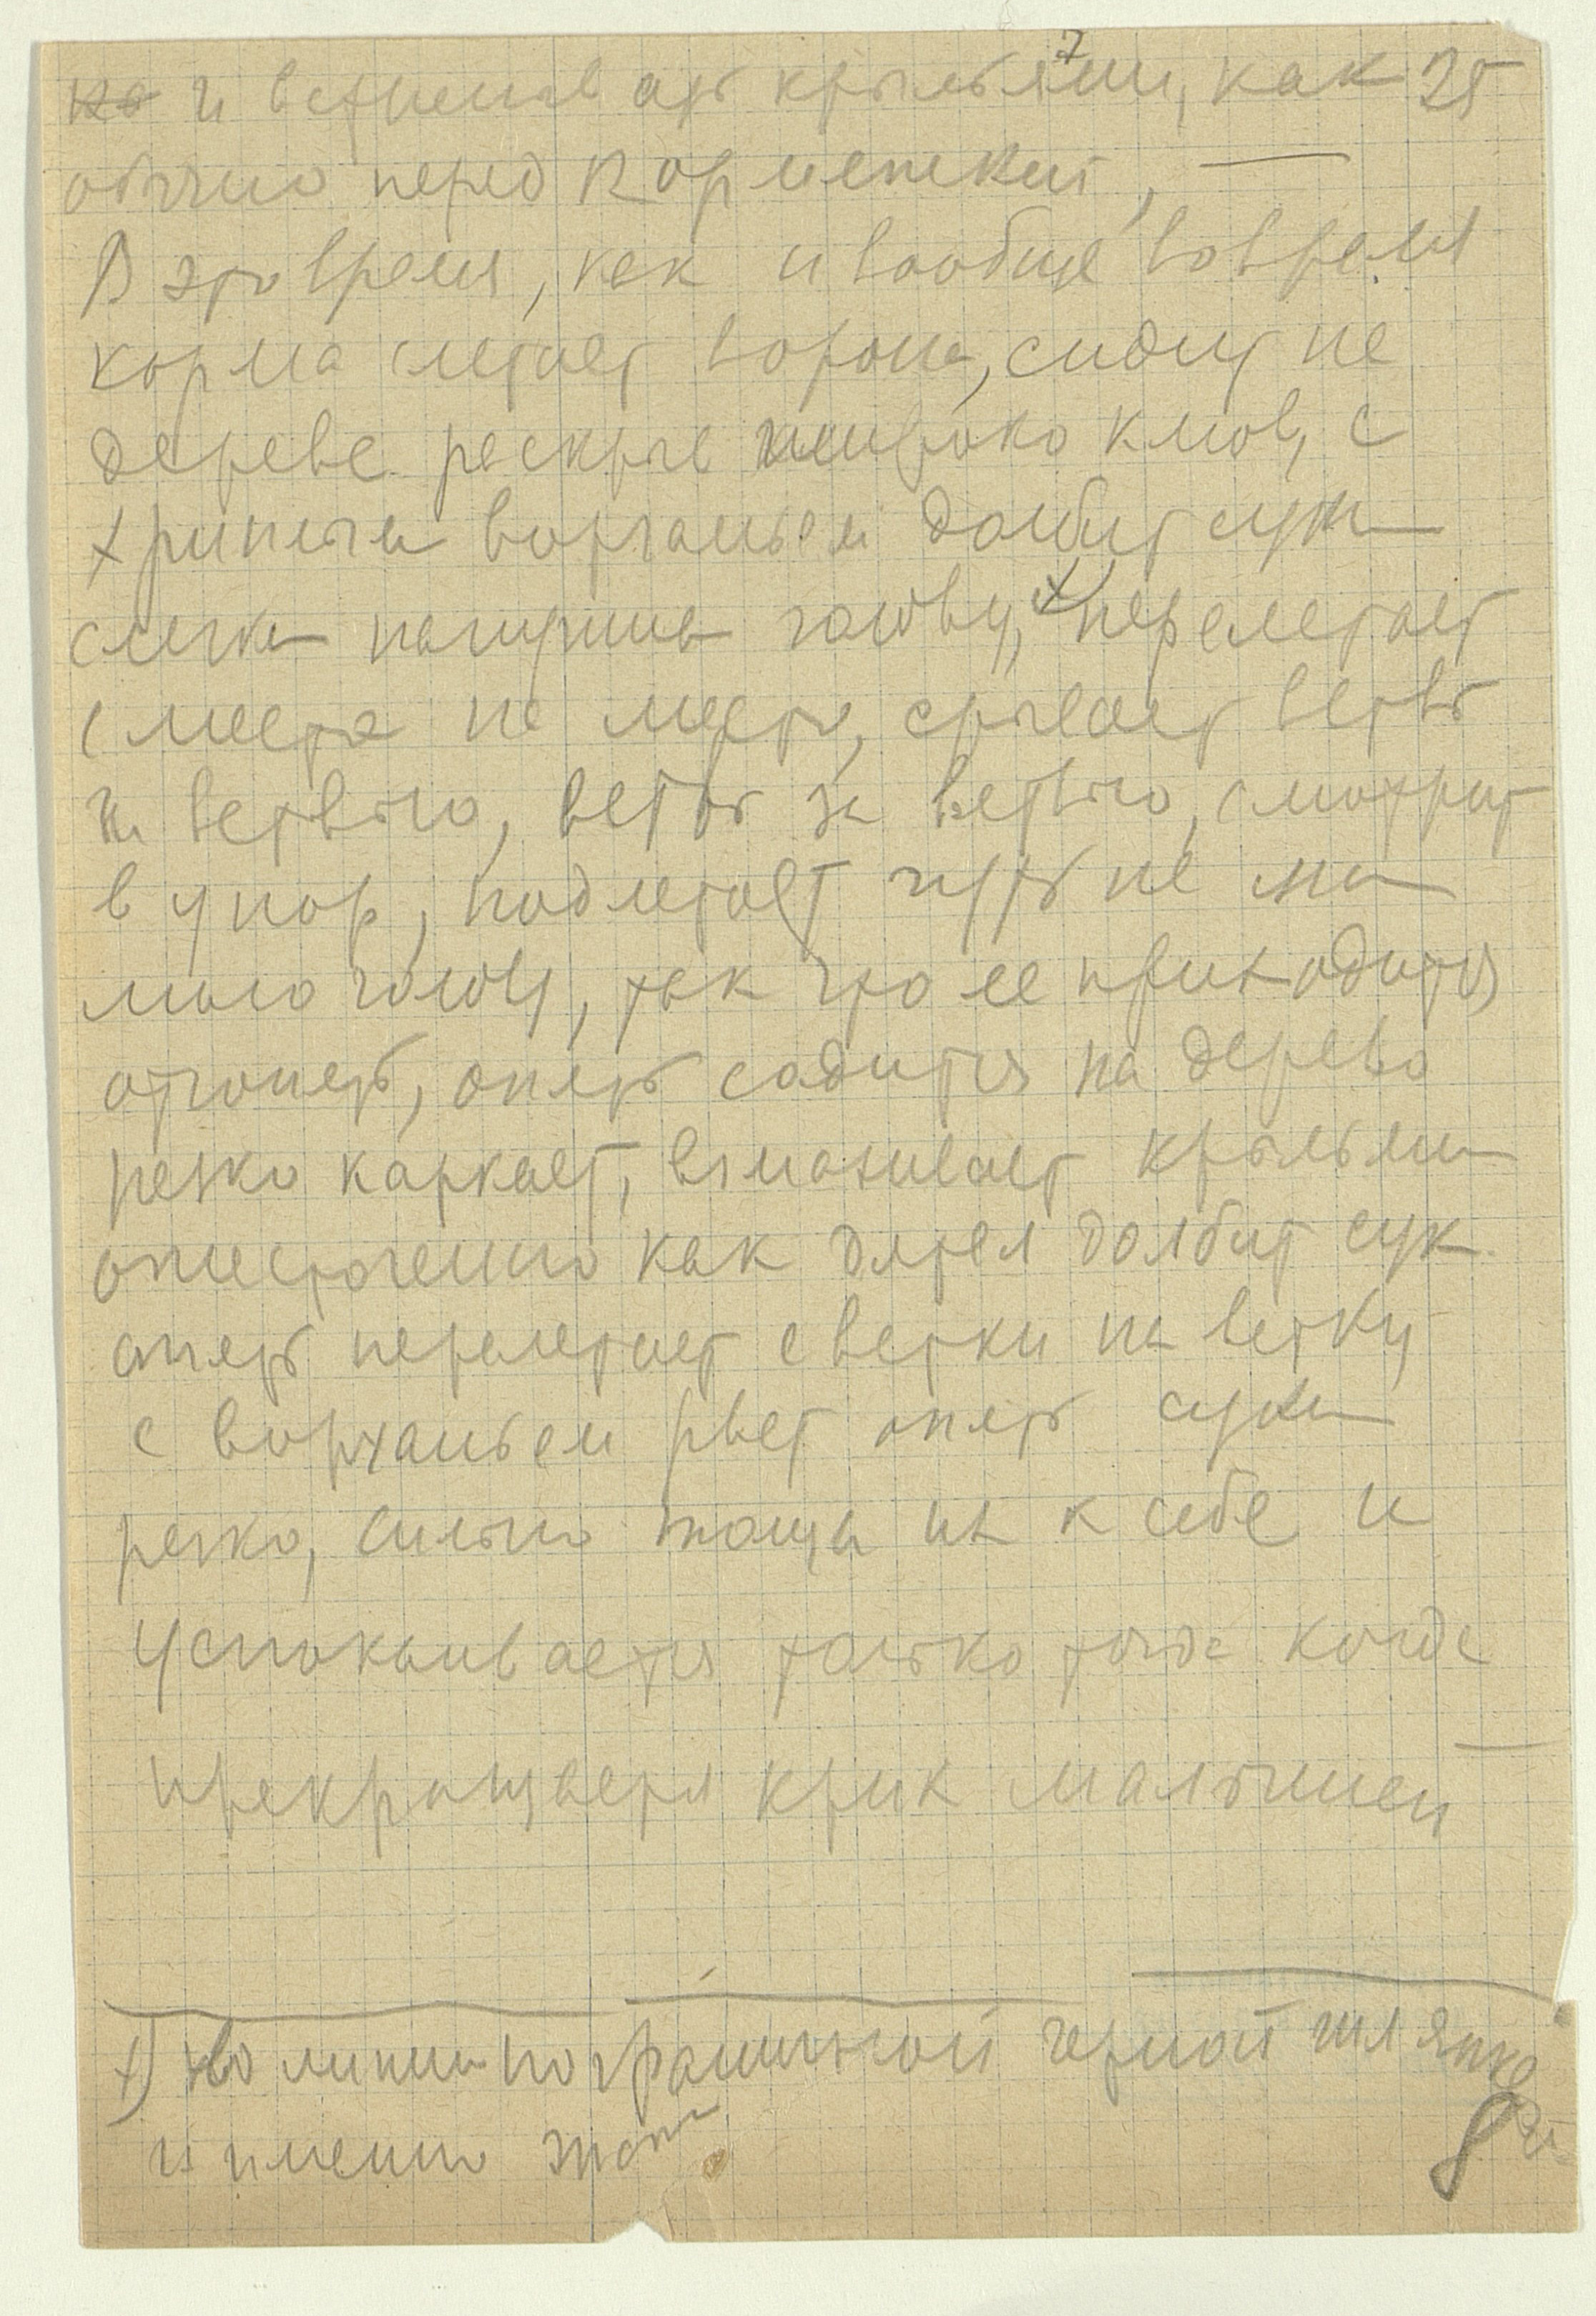 и крыльями, как 25
обычно перед кормежкой,
В это время, как и вообще во время
корма слетает ворона, сидит на
дереве раскрыв широко клюв, с
хриплым ворчаньем долбит суки
слегка голову, +) перелетает
с места на место, срывает ветвь
за ветвью, ветвь за ветвью, смотрит
в упор, подлетает чуть не на
мою голову, так что ее приходится
отгонять, опять садится на дерево
резко каркает, взмахивает крыльями
ожесточенно как дятел долбит сук
опять перелетает с ветки на ветку
с ворчаньем рвет опять суки
резко, сильно таща их к себе и
успокаивается только тогда когда
прекращается крик малышей
+) черной шляпке
и именно
8